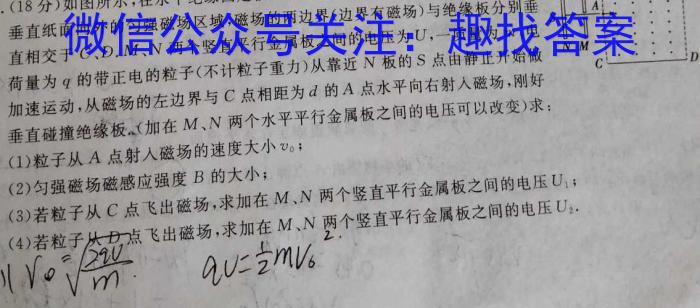 (18分)如图所示,在水平绝缘
垂直纸面 匀强磁场区域,磁场的两边界(边界有磁场)与绝缘板分别垂
直相交于C、D,M、N两个竖直平行金属板之间的电压为U,一 电
微信公众号关注:趣找答案
荷量为q的带正电的粒子(不计粒子重力)从靠近N板的S点由静止开始做
加速运动,从磁场的左边界与C点相距为d的A点水平向右射入磁场,刚好
垂直碰撞绝缘板.(加在M、N两个水平平行金属板之间的电压可以改变)求:
(1)粒子从A点射入磁场的速度大小v₀;
(2)匀强磁场磁感应强度B的大小;
(3)若粒子从C点飞出磁场,求加在M、N两个竖直平行金属板之间的电压U₁;
(4)若粒子从D点飞出磁场,求加在M、N两个竖直平行金属板之间的电压U₂.
A
N M
C D
V₀=√(2qU/m) qU=½mV₀²